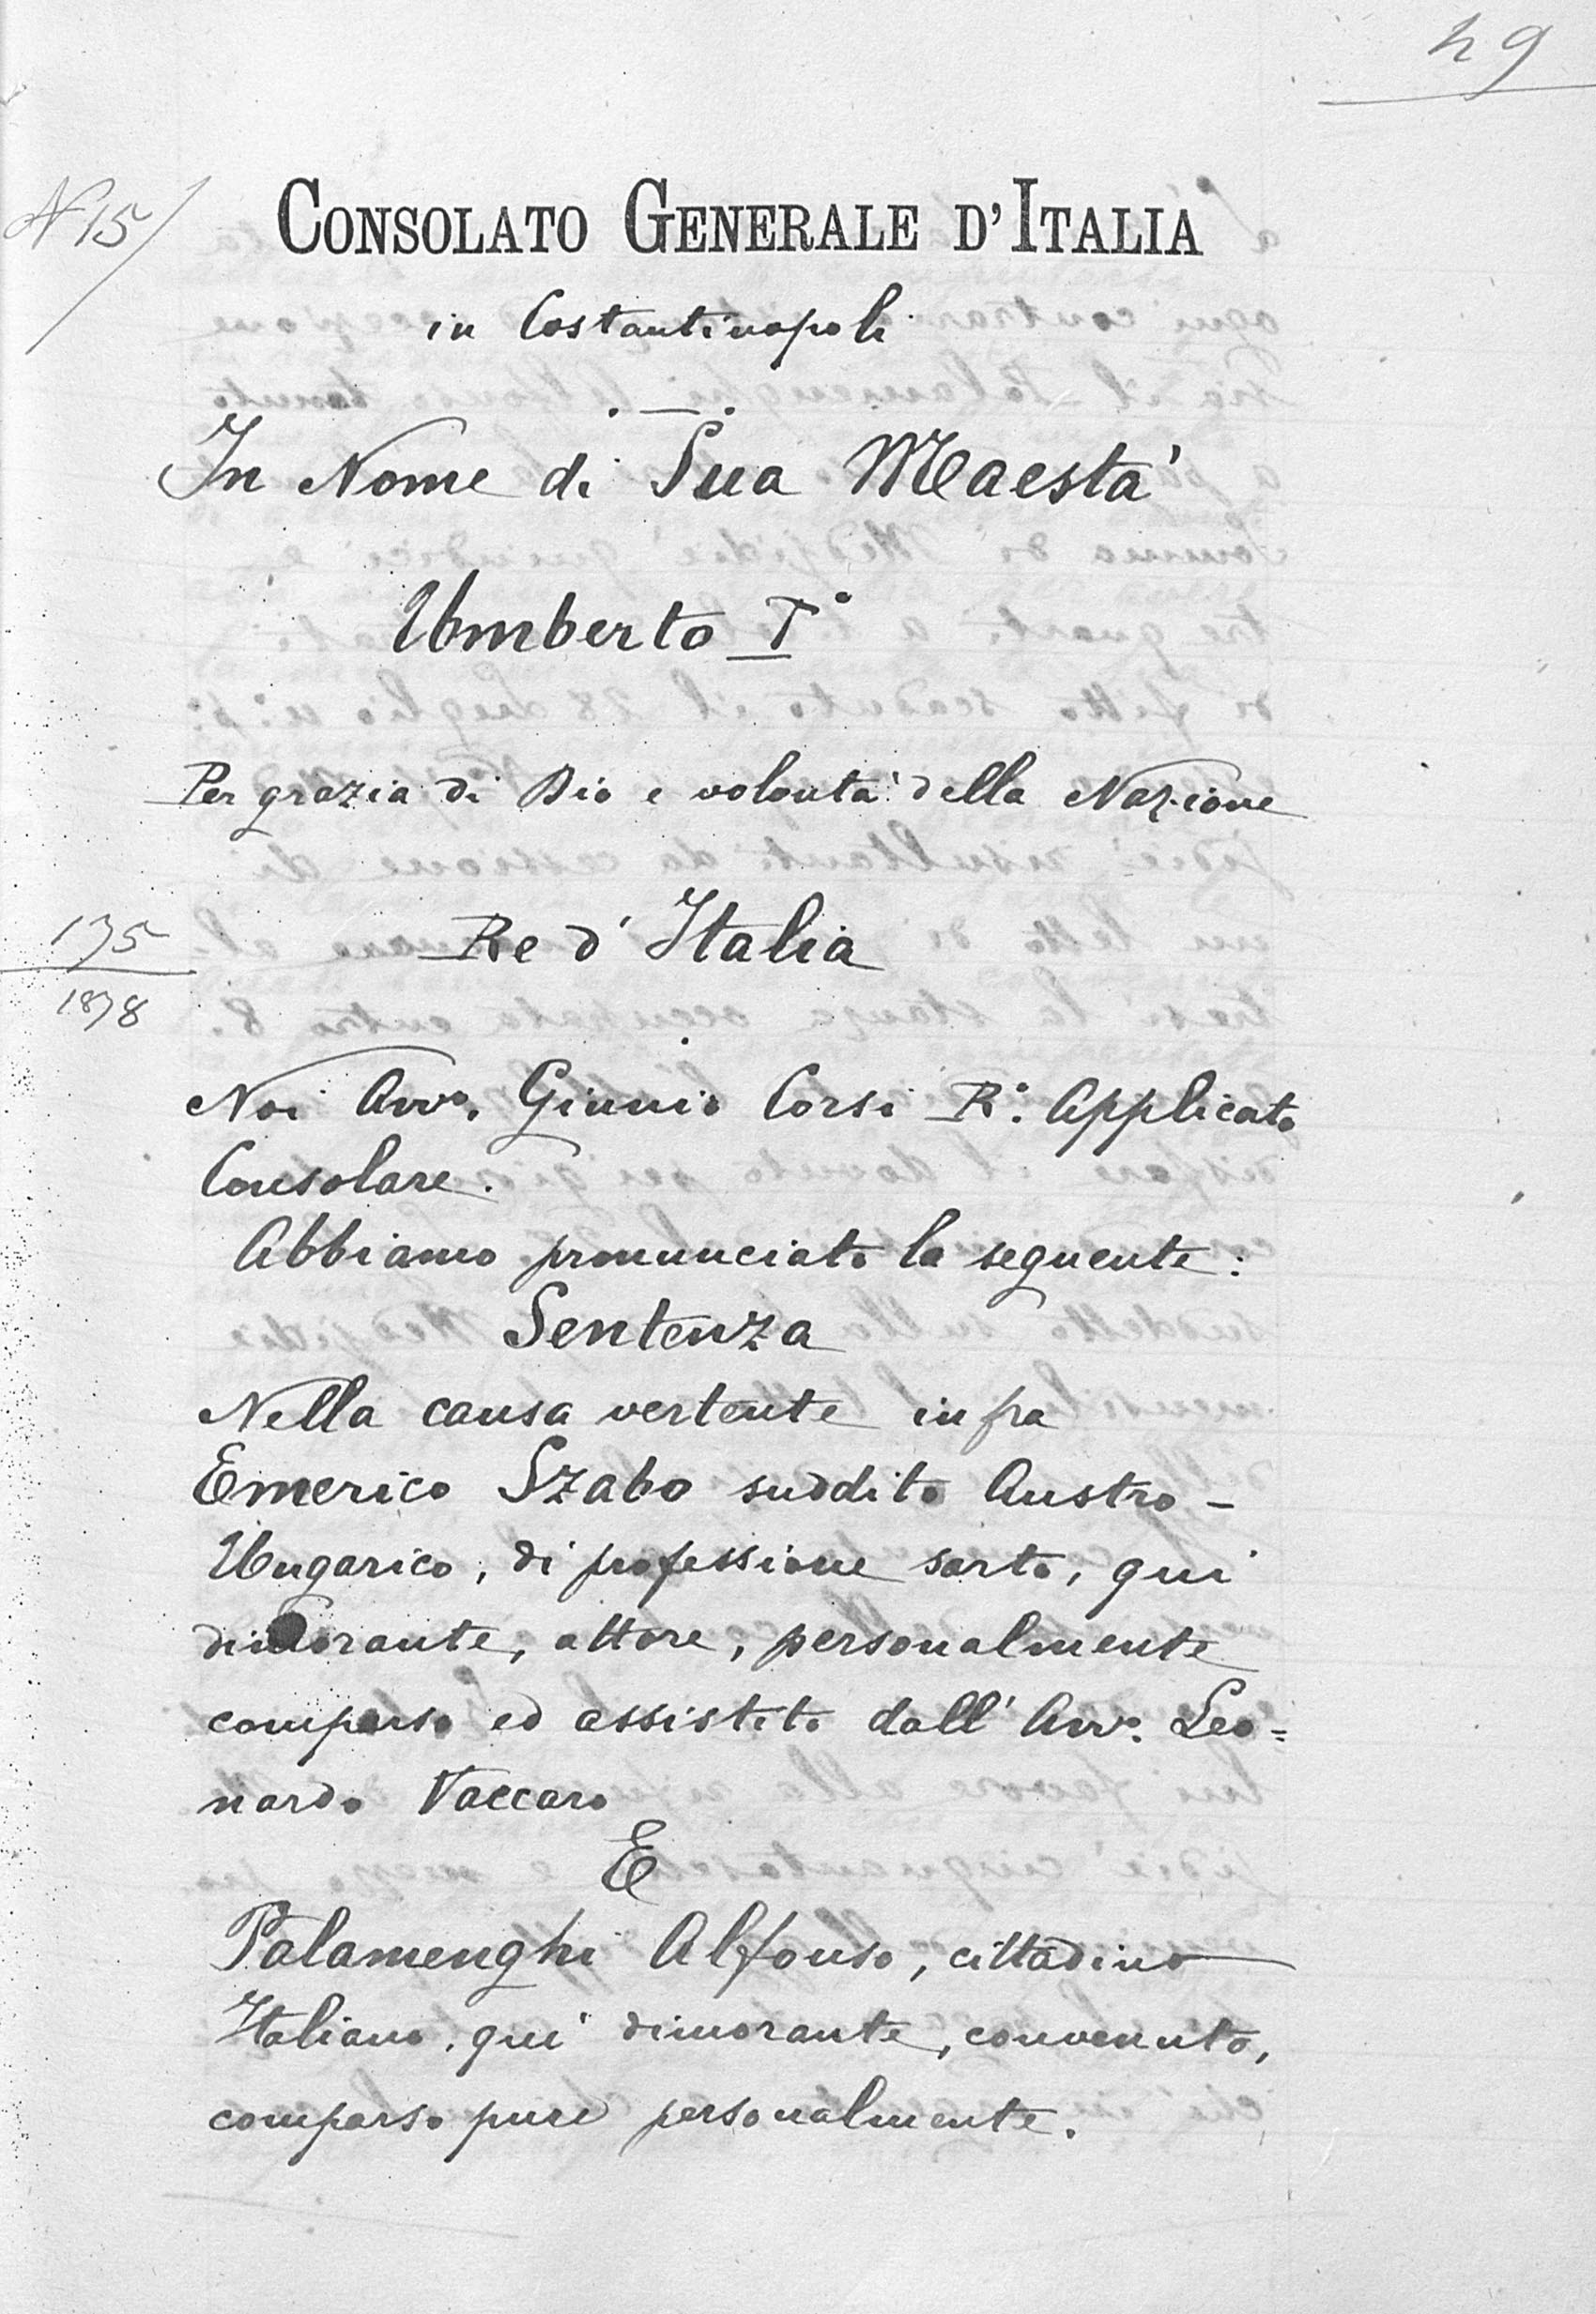 49
N 15/
CONSOLATO GENERALE D'ITALIA
in Costantinopoli
In Nome di Sua Maesta'
Umberto I°
Per grazia di Dio e volonta' della Nazione
175
1878
Re d'Italia
Noi Avvo. Giunio Corsi R°. Applicato
Consolare.
Abbiamo pronunciato la seguente:
Sentenza
Nella causa vertente infra
Emerico Szabo suddito Austro-
Ungarico, di professione sarto, qui
dimorante, attore, personalmente
comparso ed assistito dall'Avvo. Leo=
nardo Vaccaro
E
Palamenghi Alfonso, cittadino
Italiano, qui dimorante, convenuto,
comparso pure personalmente.